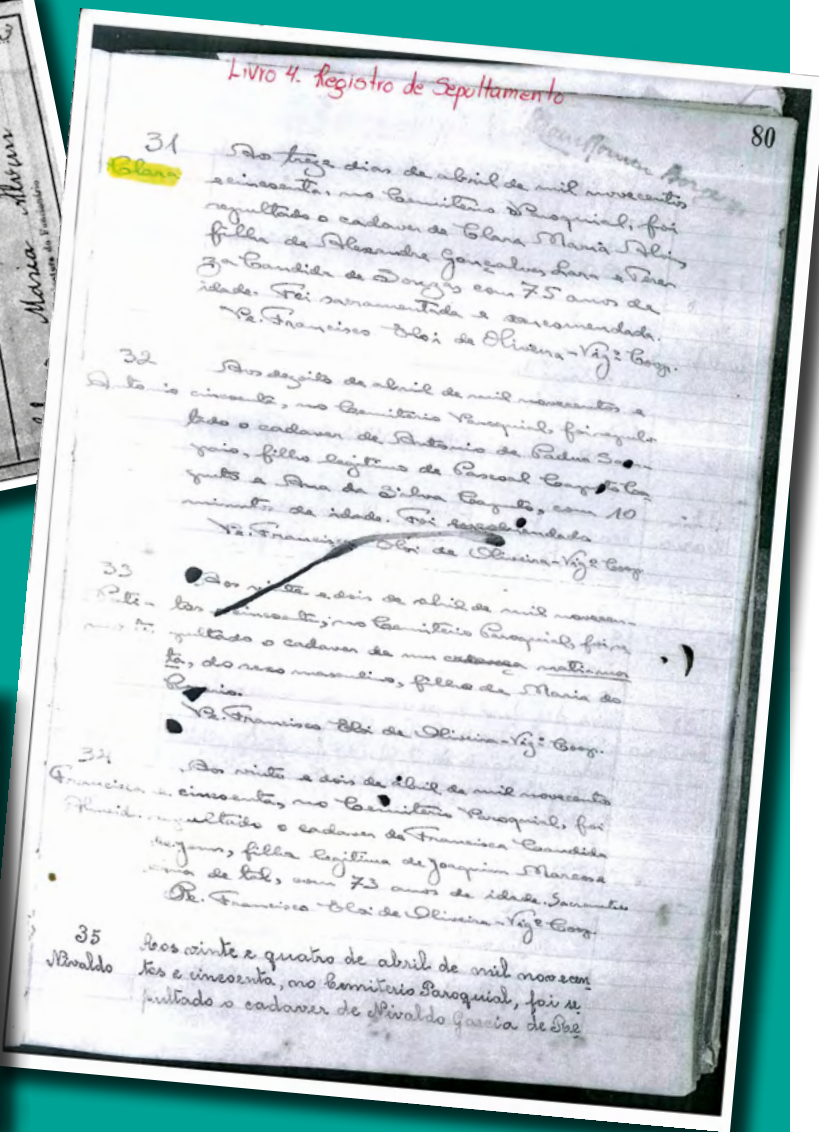 Maria Alvim
Livro 4. Registro de Sepultamento
80
31
Clara
Aos treze dias de abril de mil novecentos
e cincoenta, no Cemiterio Paroquial, foi
sepultado o cadaver de Clara Maria
filha de Alexandre Gonçalves Lara e Tere
za Candida de Souza, com 75 anos de
idade. Foi sacramentada e encomendada.
Pe. Francisco Eloi de Oliveira - Vigº Coop.
32
Antonio
Aos dezoito de abril de mil novecentos e
cincoenta, no Cemiterio Paroquial, foi sepul
tado o cadaver de Antonio de Padua
filho legitimo de Pascoal
e Ana da Silva com 10
minutos de idade. Foi
Pe. Francisco Eloi de Oliveira - Vigº Coop.
33
Aos vinte e dois de abril de mil novecen
tos e cincoenta, no Cemiterio Paroquial, foi se
pultado o cadaver de
do sexo masculino, filho de Maria do
Pe. Francisco Eloi de Oliveira - Vigº Coop.
34
Francisca
Aos vinte e dois de abril de mil novecentos
e cincoenta, no Cemiterio Paroquial, foi
sepultado o cadaver de Francisca Candida
filha legitima de Joaquim
de tal, com 73 anos de idade.
Pe. Francisco Eloi de Oliveira - Vigº Coop.
35
Nivaldo
Aos vinte e quatro de abril de mil novecen
tos e cincoenta, no Cemiterio Paroquial, foi se
pultado o cadaver de Nivaldo Garcia de